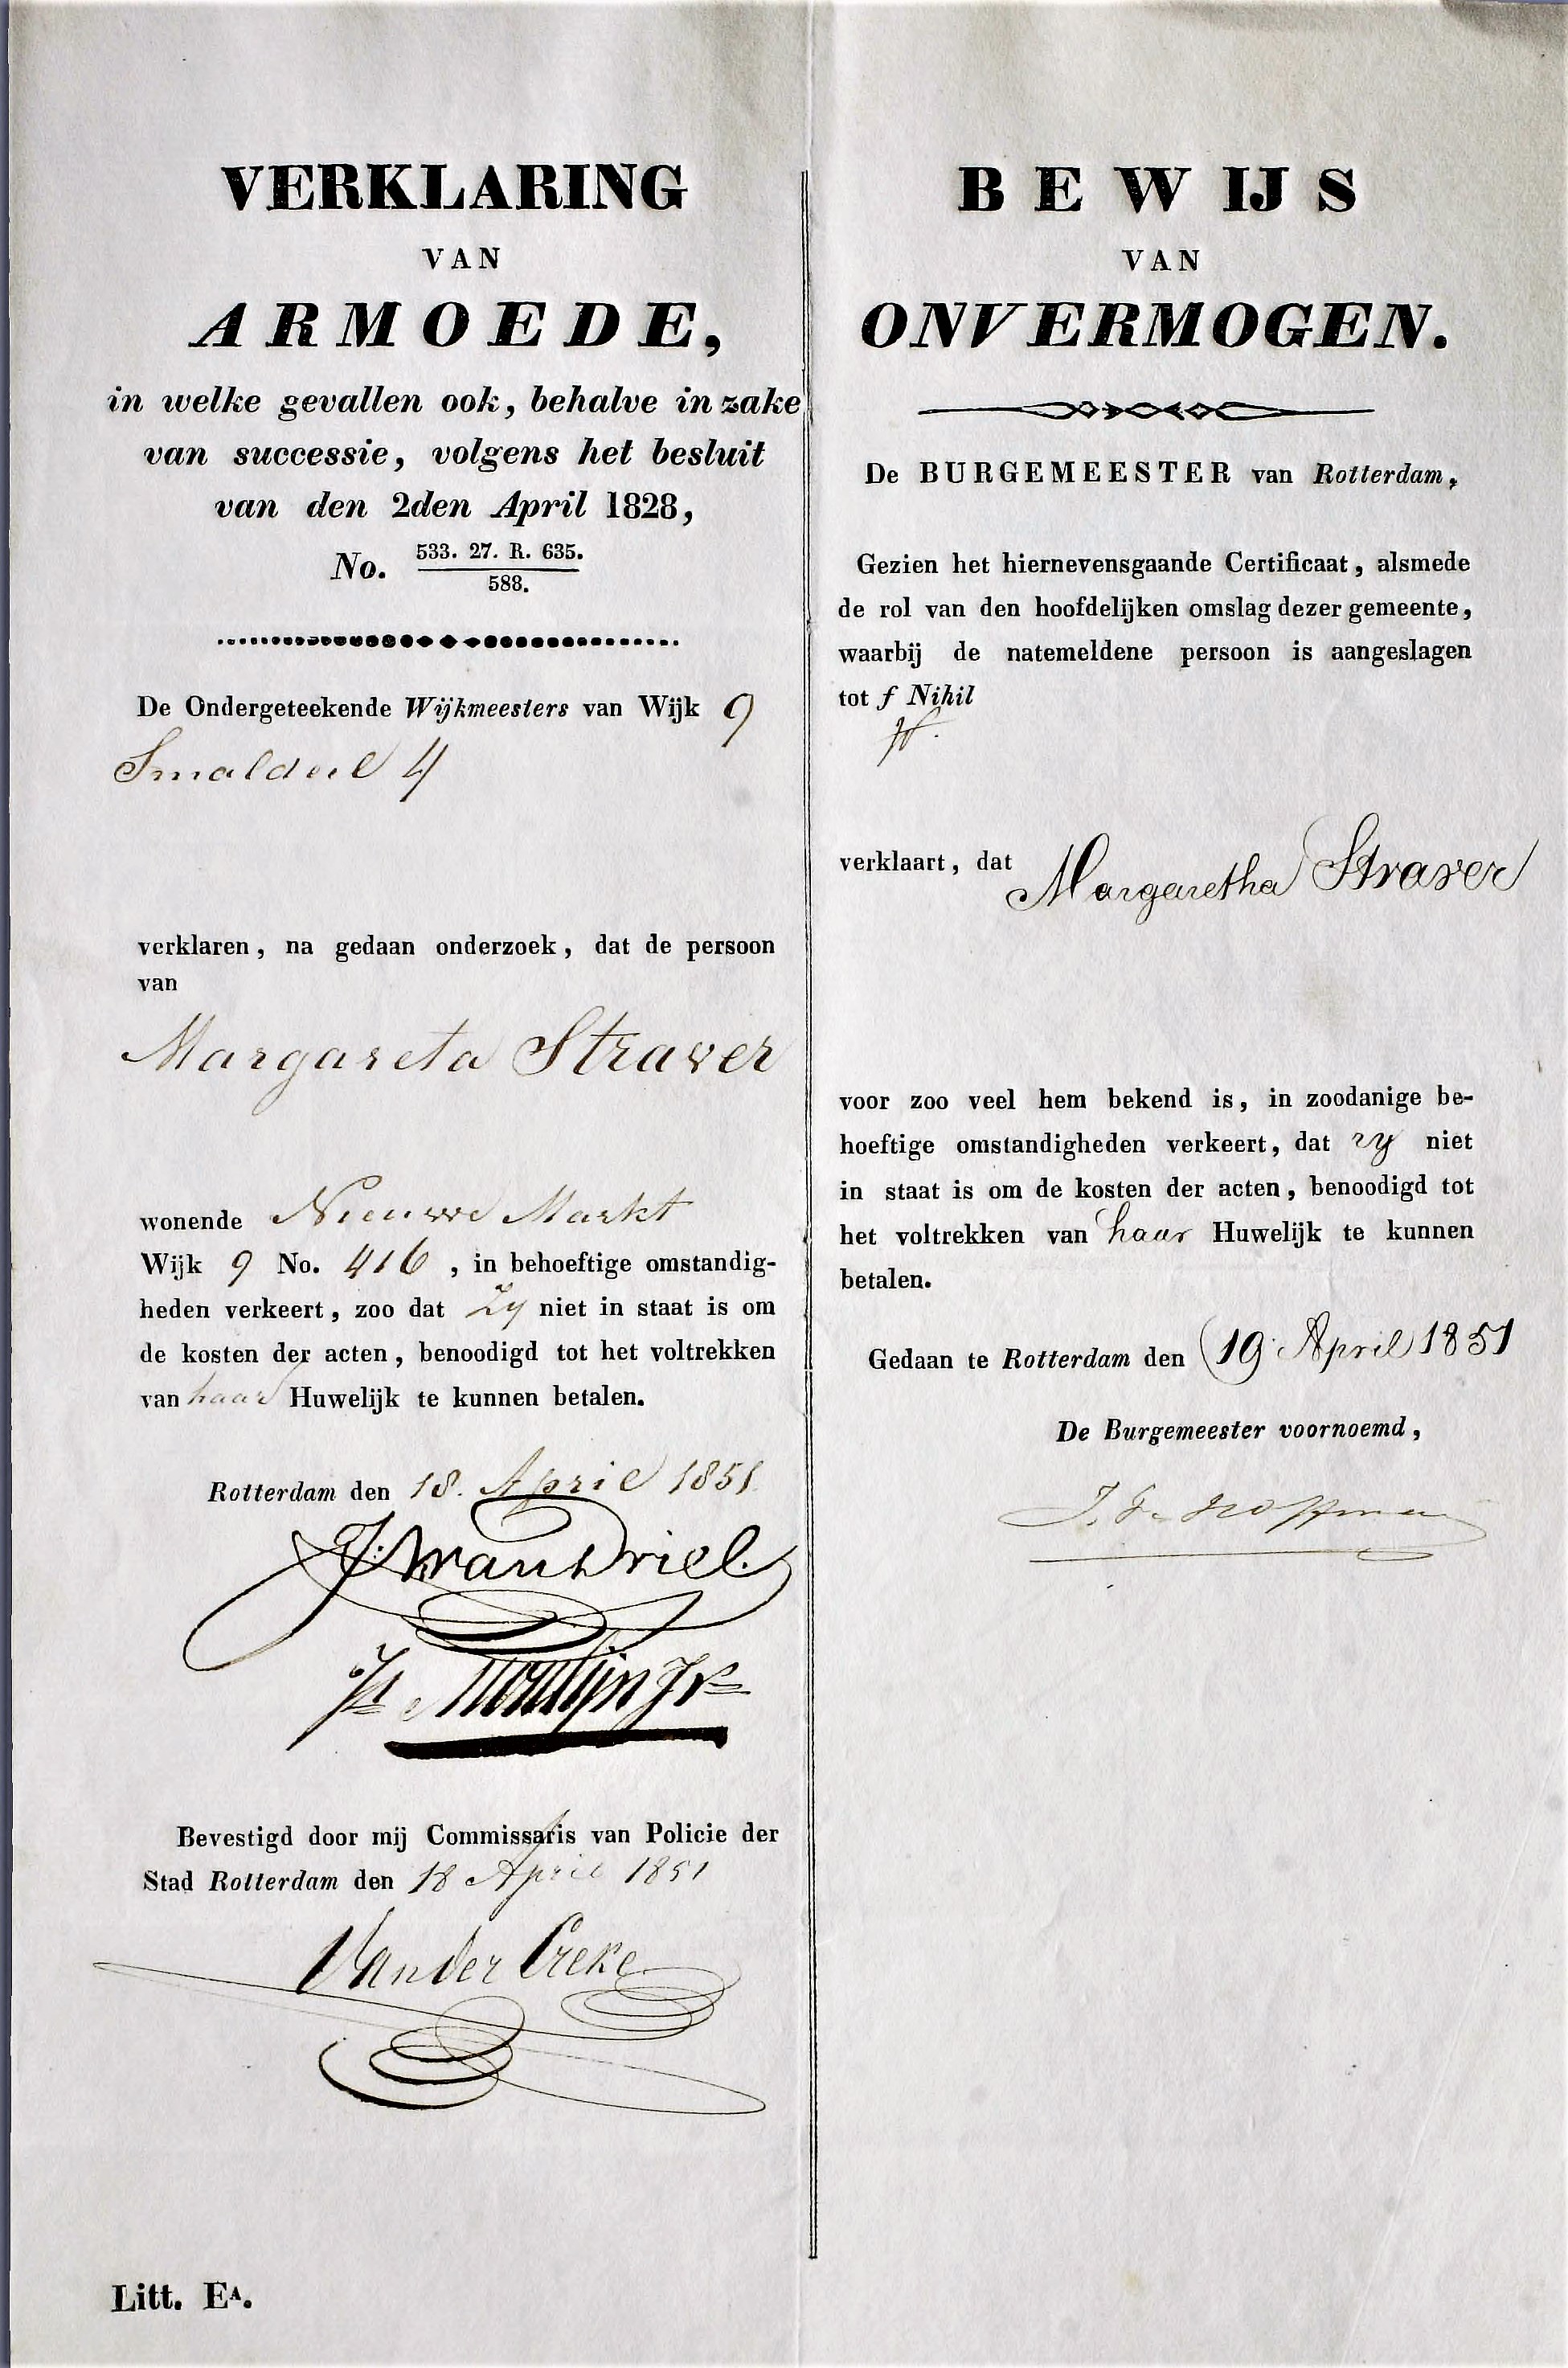 VERKLARING
VAN
ARMOEDE,
in welke gevallen ook, behalve in zake
van successie, volgens het besluit
van den 2den April 1828,
No. 533. 27. R. 635.
588.
De Ondergeteekende Wijkmeesters van Wijk 9
Smaldeel 4
verklaren, na gedaan onderzoek, dat de persoon
van
Margareta Straver
wonende Nieuwe Markt
Wijk 9 No. 416, in behoeftige omstandig-
heden verkeert, zoo dat Zy niet in staat is om
de kosten der acten, benoodigd tot het voltrekken
van haar Huwelijk te kunnen betalen.
Rotterdam den 18. April 1851.
J: van Driel.
Montijn Jr
Bevestigd door mij Commissaris van Policie der
Stad Rotterdam den 18 April 1851
Van der Creke
Litt. EA.
BEWIJS
VAN
ONVERMOGEN.
De BURGEMEESTER van Rotterdam,
Gezien het hiernevensgaande Certificaat, alsmede
de rol van den hoofdelijken omslag dezer gemeente,
waarbij de natemeldene persoon is aangeslagen
tot f Nihil
verklaart, dat Margaretha Straver
voor zoo veel hem bekend is, in zoodanige be-
hoeftige omstandigheden verkeert, dat zy niet
in staat is om de kosten der acten, benoodigd tot
het voltrekken van haar Huwelijk te kunnen
betalen.
Gedaan te Rotterdam den 19 April 1851
De Burgemeester voornoemd,
J. F. Hoffman